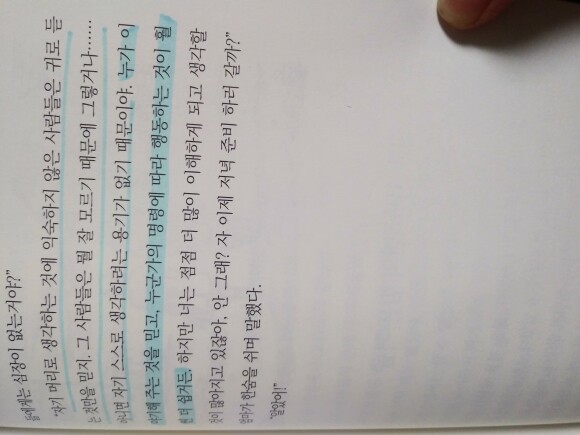 들에게는 심장이 없는거야?"
"자기 머리로 생각하는 것에 익숙하지 않은 사람들은 귀로 듣
는 것만을 믿지. 그 사람들은 뭘 잘 모르기 때문에 그렇거나……
아니면 자기 스스로 생각하려는 용기가 없기 때문이야. 누가 이
야기해 주는 것을 믿고, 누군가의 명령에 따라 행동하는 것이 훨
씬 더 쉽거든. 하지만 너는 점점 더 많이 이해하게 되고 생각할
것이 많아지고 있잖아, 안 그래? 자 이제 저녁 준비 하러 갈까?"
엄마가 한숨을 쉬며 말했다.
"알았어!"